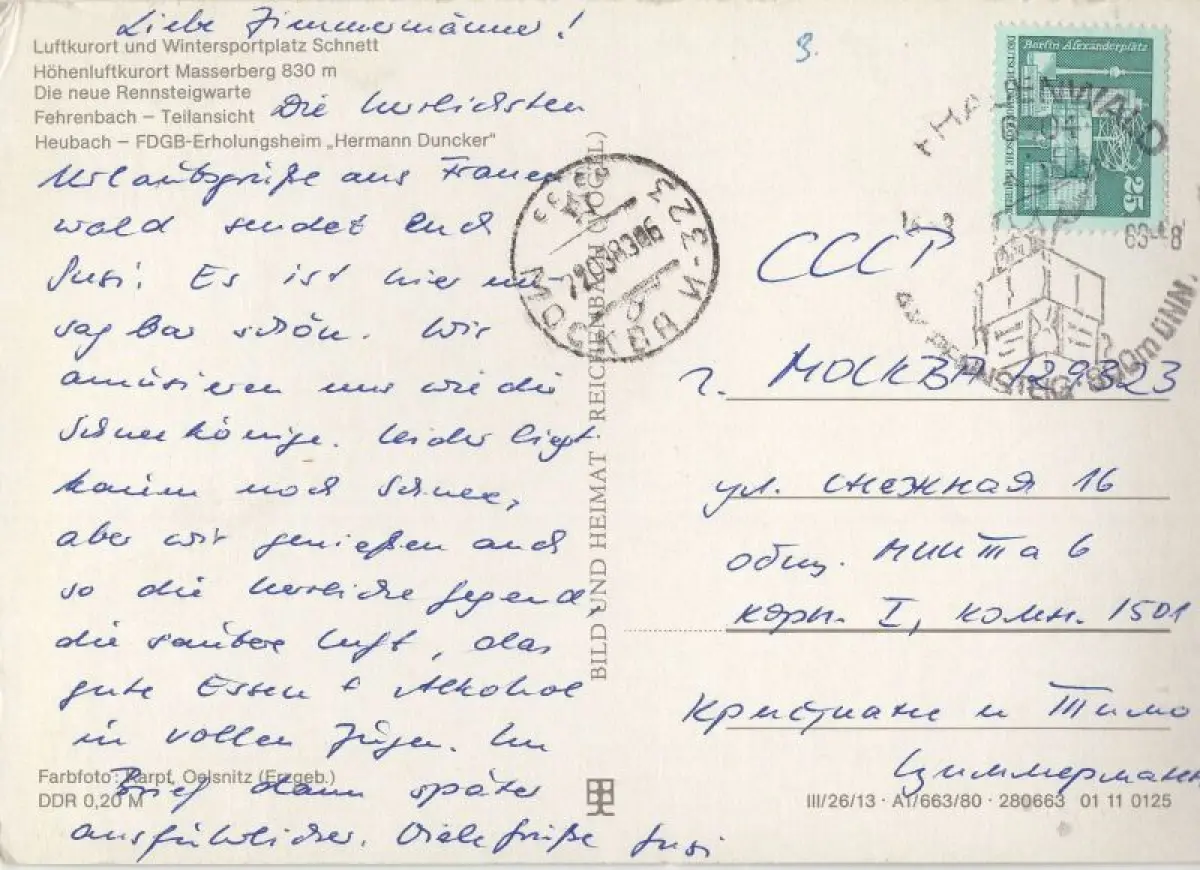 Liebe Zimmermänner!
Luftkurort und Wintersportplatz Schnett
Höhenluftkurort Masserberg 830 m
Die neue Rennsteigwarte
Fehrenbach – Teilansicht
Heubach – FDGB-Erholungsheim „Hermann Duncker“
Die herrlichsten
Urlaubsgrüße aus Frauen
wald sendet euch
Susi! Es ist hier un-
sagbar schön. Wir
amüsieren uns wie die
Schneekönige. Leider liegt
kaum noch Schnee,
aber wir genießen auch
so die herrliche Gegend,
die saubere Luft, das
gute Essen + Alkohol
in vollen Zügen. Im
Brief dann später
ausführlicher. Viele Grüße Susi
Farbfoto: Karpf, Oelsnitz (Erzgeb.)
DDR 0,20 M
BILD UND HEIMAT REICHENBACH (VOGTL)
МОСКВА И-323
3.
Berlin Alexanderplatz
25
СССР
г. МОСКВА 129323
ул. снежная 16
общ. МИИТа 6
корп. I, комн. 1501
Кристиане и Тимо
Циммерманн
III/26/13 · A1/663/80 · 280663 01 11 0125